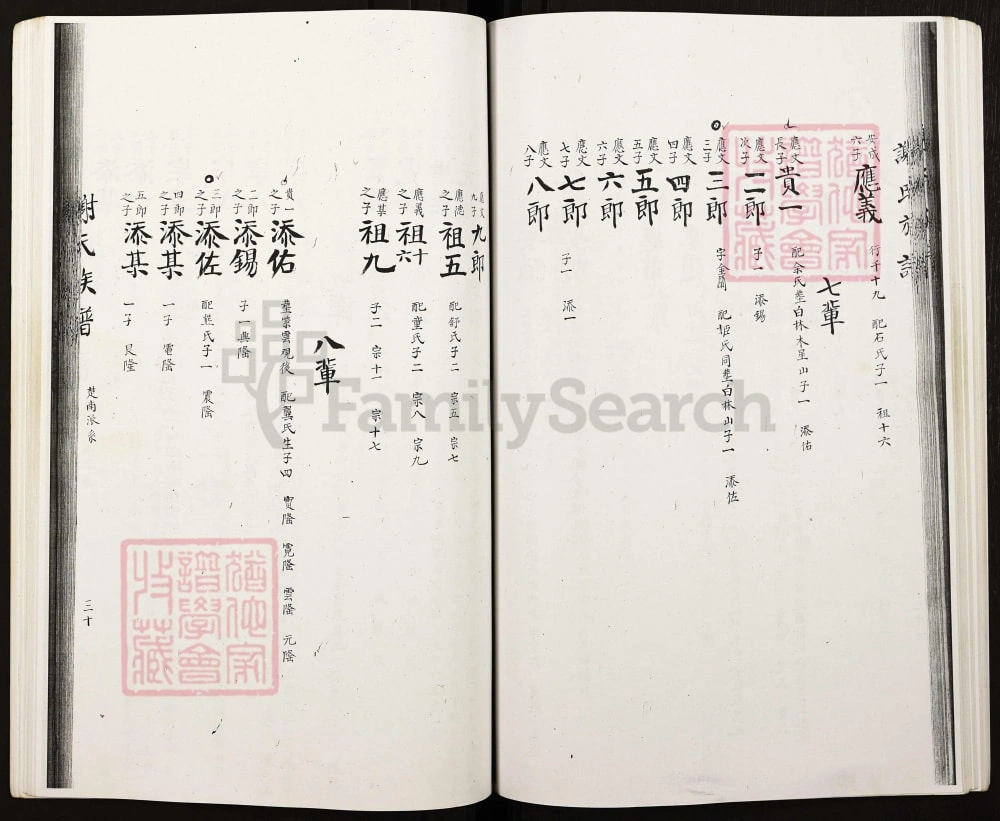 謝氏族譜
安成六子 應義 行千十九 配石氏子一 祖十六
七輩
應文長子 貴一 配余氏塟白林木星山子一 添佑
應文次子 二郎 子一 添錫
應文三子 三郎 字金蘭 配姬氏同塟白林山子一 添佐
應文四子 四郎
應文五子 五郎
應文六子 六郎
應文七子 七郎 子一 添一
應文八子 八郎
應文九子 九郎
應德之子 祖五 配舒氏子二 宗五 宗七
應義之子 祖十六 配童氏子二 宗八 宗九
應某之子 祖九 子二 宗十一 宗十七
八輩
貴一之子 添佑 塟紫雲觀後 配冀氏生子四 寅隆 寬隆 雲隆 元隆
二郎之子 添錫 子一典隆
三郎之子 添佐 配 氏子一 震隆
四郎之子 添某 一子 電隆
五郎之子 添某 一子 艮隆
謝氏族譜
楚南派系
三十
猶他家譜學會收藏
猶他家譜學會收藏
FamilySearch